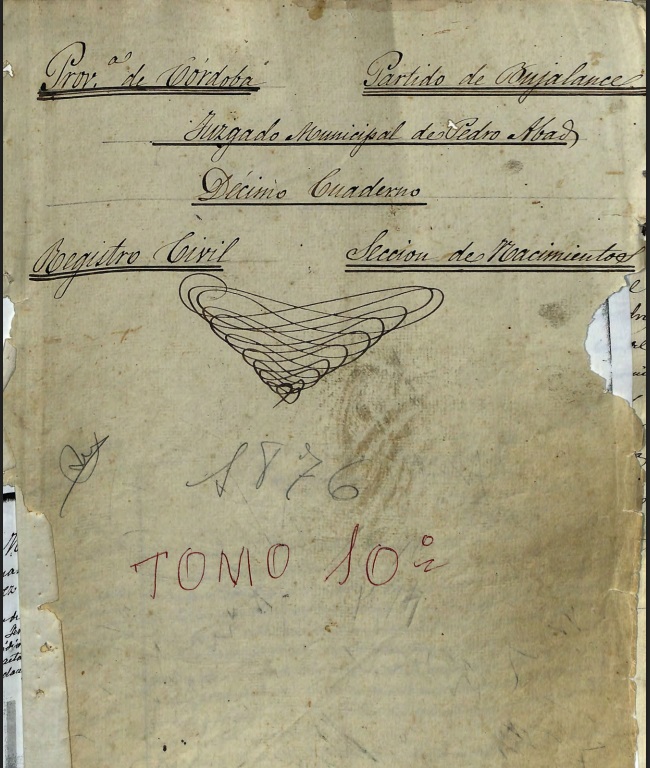 Prov.ª de Córdoba Partido de Bujalance
Juzgado Municipal de Pedro Abad
Décimo Cuaderno
Registro Civil Seccion de Nacimientos
1876
TOMO 10º